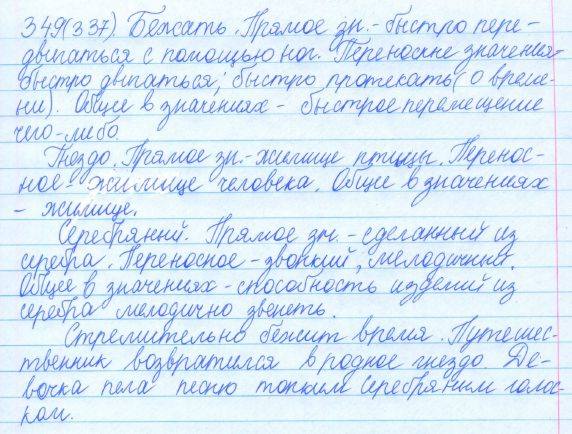 349(337). Бежать. Прямое зн. - быстро пере-
двигаться с помощью ног. Переносные значения -
быстро двигаться; быстро протекать (о време-
ни). Общее в значениях - быстрое перемещение
чего-либо.
Гнездо. Прямое зн. - жилище птицы. Перенос-
ное - жилище человека. Общее в значениях
- жилище.
Серебряный. Прямое зн. - сделанный из
серебра. Переносное - звонкий, мелодичный.
Общее в значениях - способность изделий из
серебра мелодично звенеть.
Стремительно бежит время. Путешес-
твенник возвратился в родное гнездо. Де-
вочка пела песню тонким серебряным голос-
ком.